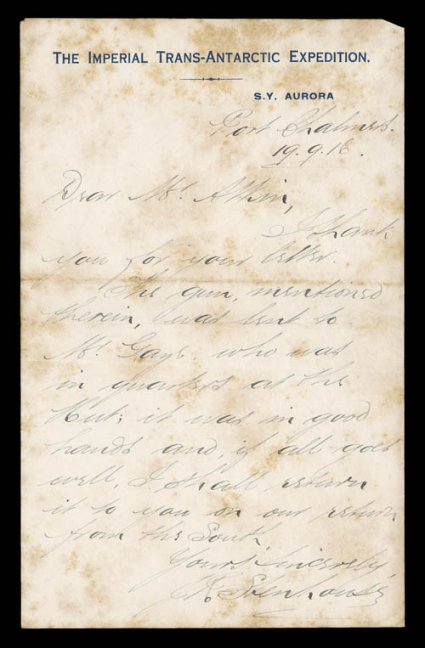 THE IMPERIAL TRANS-ANTARCTIC EXPEDITION.
S.Y. AURORA
Port Chalmers.
19.9.16.
Dear Mr. Atkin,
I thank
you for your letter.
The gun, mentioned
therein, was lent to
Mr. Gaze who was
in quarters at the
Hut; it was in good
hands and, if all goes
well, I shall return
it to you on our return
from the South
Yours sincerely
Stenhouse